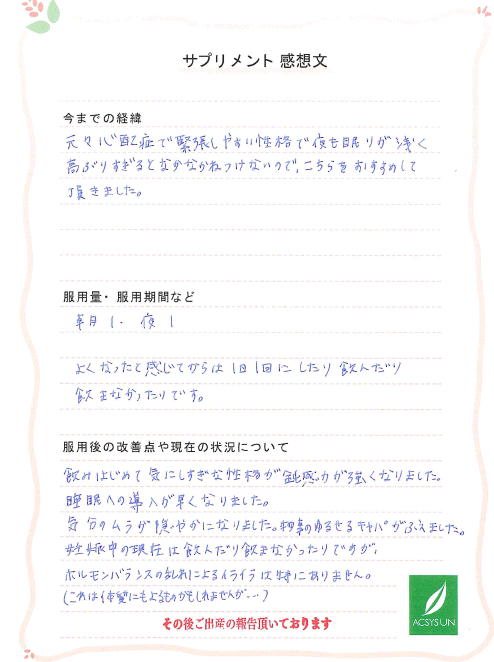 サプリメント 感想文
今までの経緯
元々心配症で緊張しやすい性格で夜も眠りが浅く
高ぶりすぎるとなかなかねつけないので、こちらをおすすめして
頂きました。
服用量・服用期間など
朝1・夜1
よくなったと感じてからは1日1回にしたり飲んだり
飲まなかったりです。
服用後の改善点や現在の状況について
飲みはじめて気にしすぎな性格が鈍感力が強くなりました。
睡眠への導入が早くなりました。
気分のムラが穏やかになりました。物事のゆるせるキャパがふえました。
妊娠中の現在は飲んだり飲まなかったりですが、
ホルモンバランスの乱れによるイライラは特にありません。
(これは体質にもよるのかもしれませんが...)
その後ご出産の報告頂いております
ACSYSUN